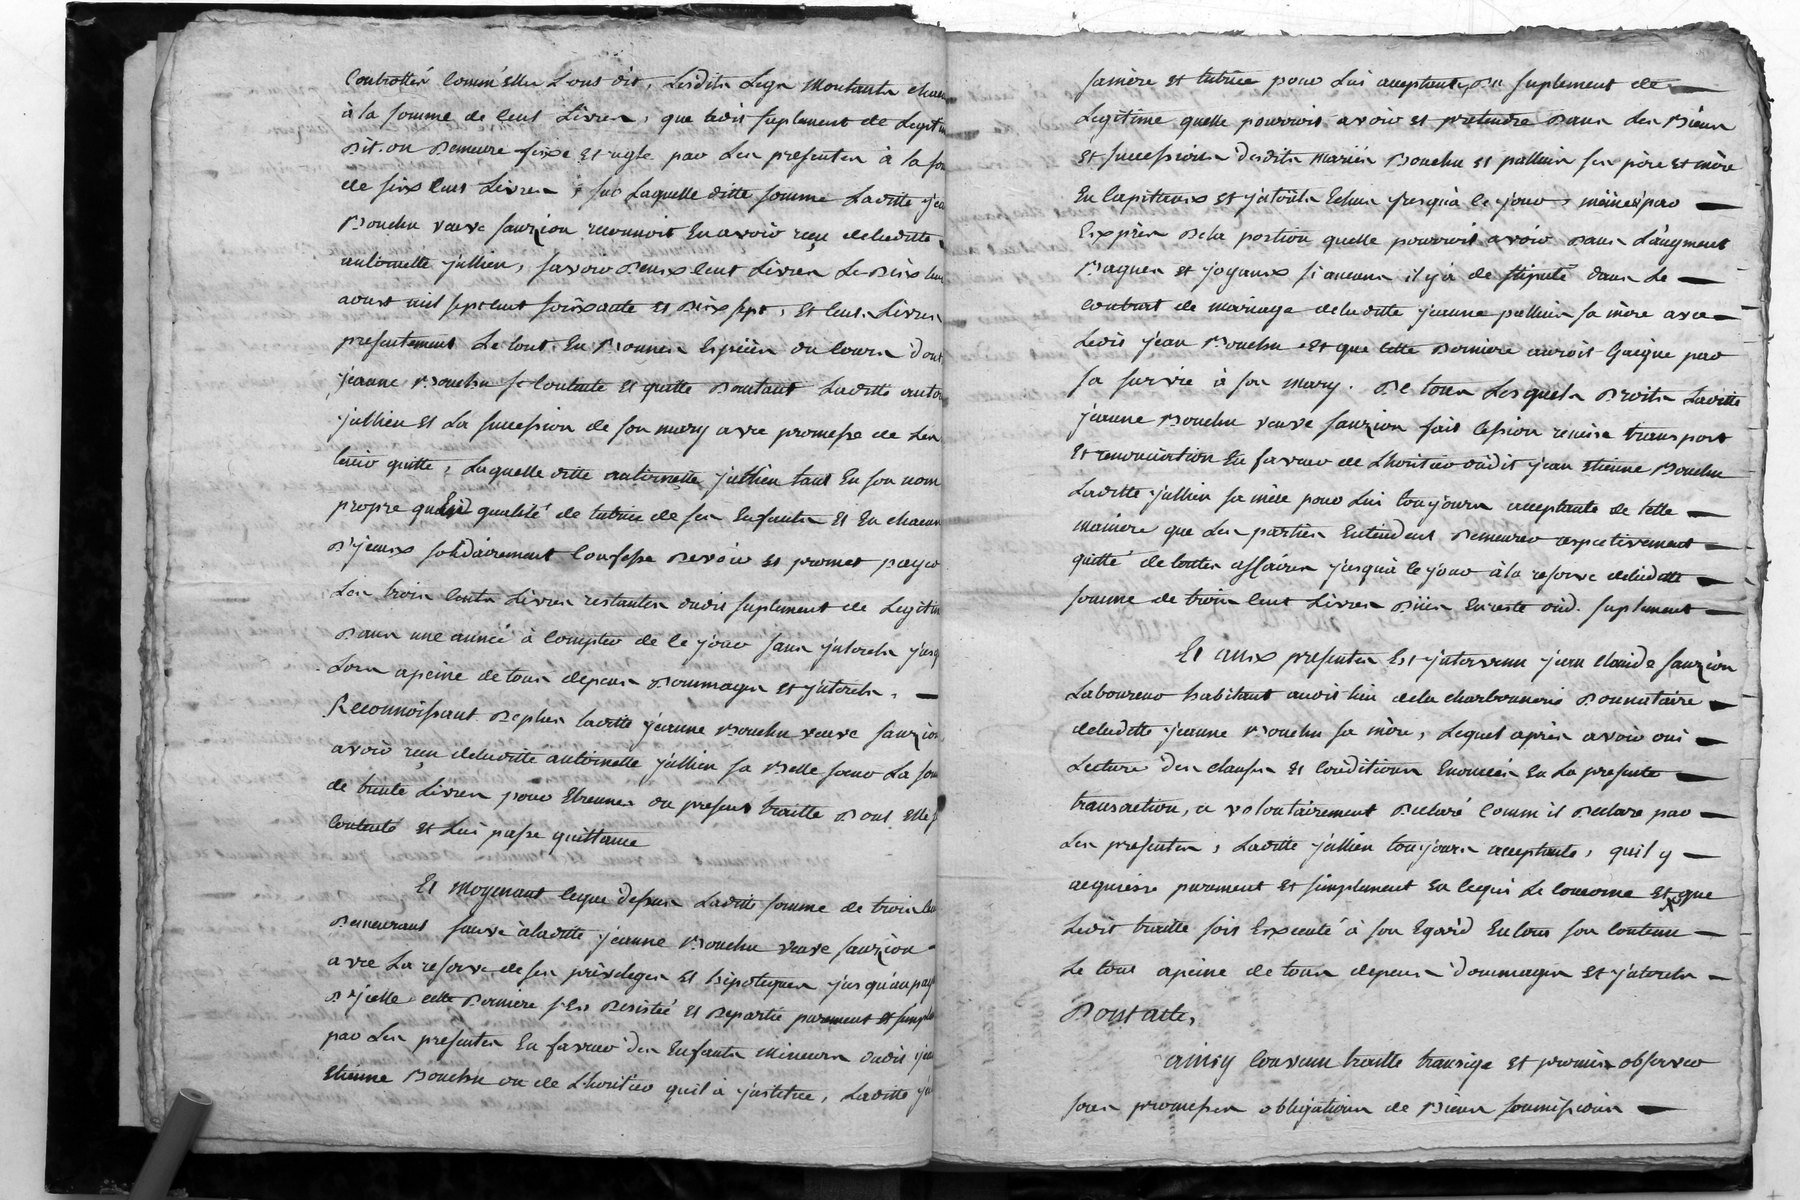 Controllés Comm'elles sont dit, Lesdits Legs Montants chac
à la somme de Cent Livres, que ledit suplement de Legitim
Dit. on Demeure fixé et reglé par Les presentes à la som
de six Cent Livres, sur Laquelle ditte somme Laditte jea
Bouchu veuve Sauzion reconnoit en avoir reçu deladitte
antoinette jullien, savoir Deux Cent Livres Le Dix
aoust mil sept Cent soixante et Dix sept, et Cent Livres
presentement Le tout En Bonnes Espèces du Cours Dont
jeanne Bouchu se Contente et quitte D'autant Laditte anto
jullien et La succession de son mary avec promesse de Len
tenir quitte, Laquelle ditte antoinette jullien tant En son nom
propre quen qualité de tutrice de ses Enfants et En chacun
D'jceux solidairement Confesse Devoir et promet payer
Les trois Cents Livres restantes dudit suplement de Legitim
Dans une année à Compter de Ce jour sans jnterets jusq
Lors apeine de tous depens Dommages et jnterets.
Reconnoissant De plus laditte jeanne Bouchu veuve Sauzion
avoir reçu deladitte antoinette jullien sa Belle soeur La som
de trente Livres pour Etrennes du present traitté Dont Elle s
Contente et Lui passe quittance
Et Moyenant Ceque Dessus Laditte somme de trois Cen
Demeurant sauve àladitte jeanne Bouchu veuve Sauzion
avec La reserve de ses privileges et hipoteques jusqu'au pay
D'jcelle cette Derniere s'est Desistée et Departie purement et simple
par Les presentes En faveur des Enfants mineurs dudit jea
Etienne Bouchu ou de L'heritier quil à jnstitué, Laditte ju
sa mère et tutrice pour Lui acceptante, Du suplement de
Legitime quelle pourroit avoir et pretendre Dans Les Biens
et successions desdits mariés Bouchu et pallien ses père et mère
En Capitaux et jnterêts Echus jusquà Ce jour, même par
Exprès De la portion quelle pourroit avoir Dans L'augment
Bagues et joyaux si aucuns il y a de stipulé dans Le
contract de mariage deladitte jeanne pallien sa mère avec
Ledit jean Bouchu et que Cette Derniere auroit Gaigné par
sa survie à son mary. De tous Lesquels Droits Laditte
jeanne Bouchu veuve Sauzion fait Cession remise transport
et renonciation En faveur de L'heritier dudit jean Etienne Bouchu
Laditte jullien sa mère pour Lui toujours acceptante de telle
maniere que Les parties Entendent Demeurer respectivement
quitte de toutes affaires jusquà Ce jour à la reserve deladitte
somme de trois Cent Livres Dües En reste dud. suplement
Et aux presentes Est jntervenu jean Claude Sauzion
Laboureur habitant audit lieu dela charbonnerie Donnataire
deladitte jeanne Bouchu sa mère, Lequel après avoir oui
Lecture des clauses et Conditions Enoncées En La presente
transaction, a volontairement Declaré Comm'il Declare par
Les presentes, Laditte jullien toujours acceptante, quil y
acquiesse purement et simplement En Cequi Le Concerne et que
Ledit traitté soit Executé à son Egard En tout son Contenu
Le tout apeine de tous depens dommages et jnterets
Dont acte,
ainsy Convenu traitté transigé et promis observer
sous promesses obligations de Biens soumissions